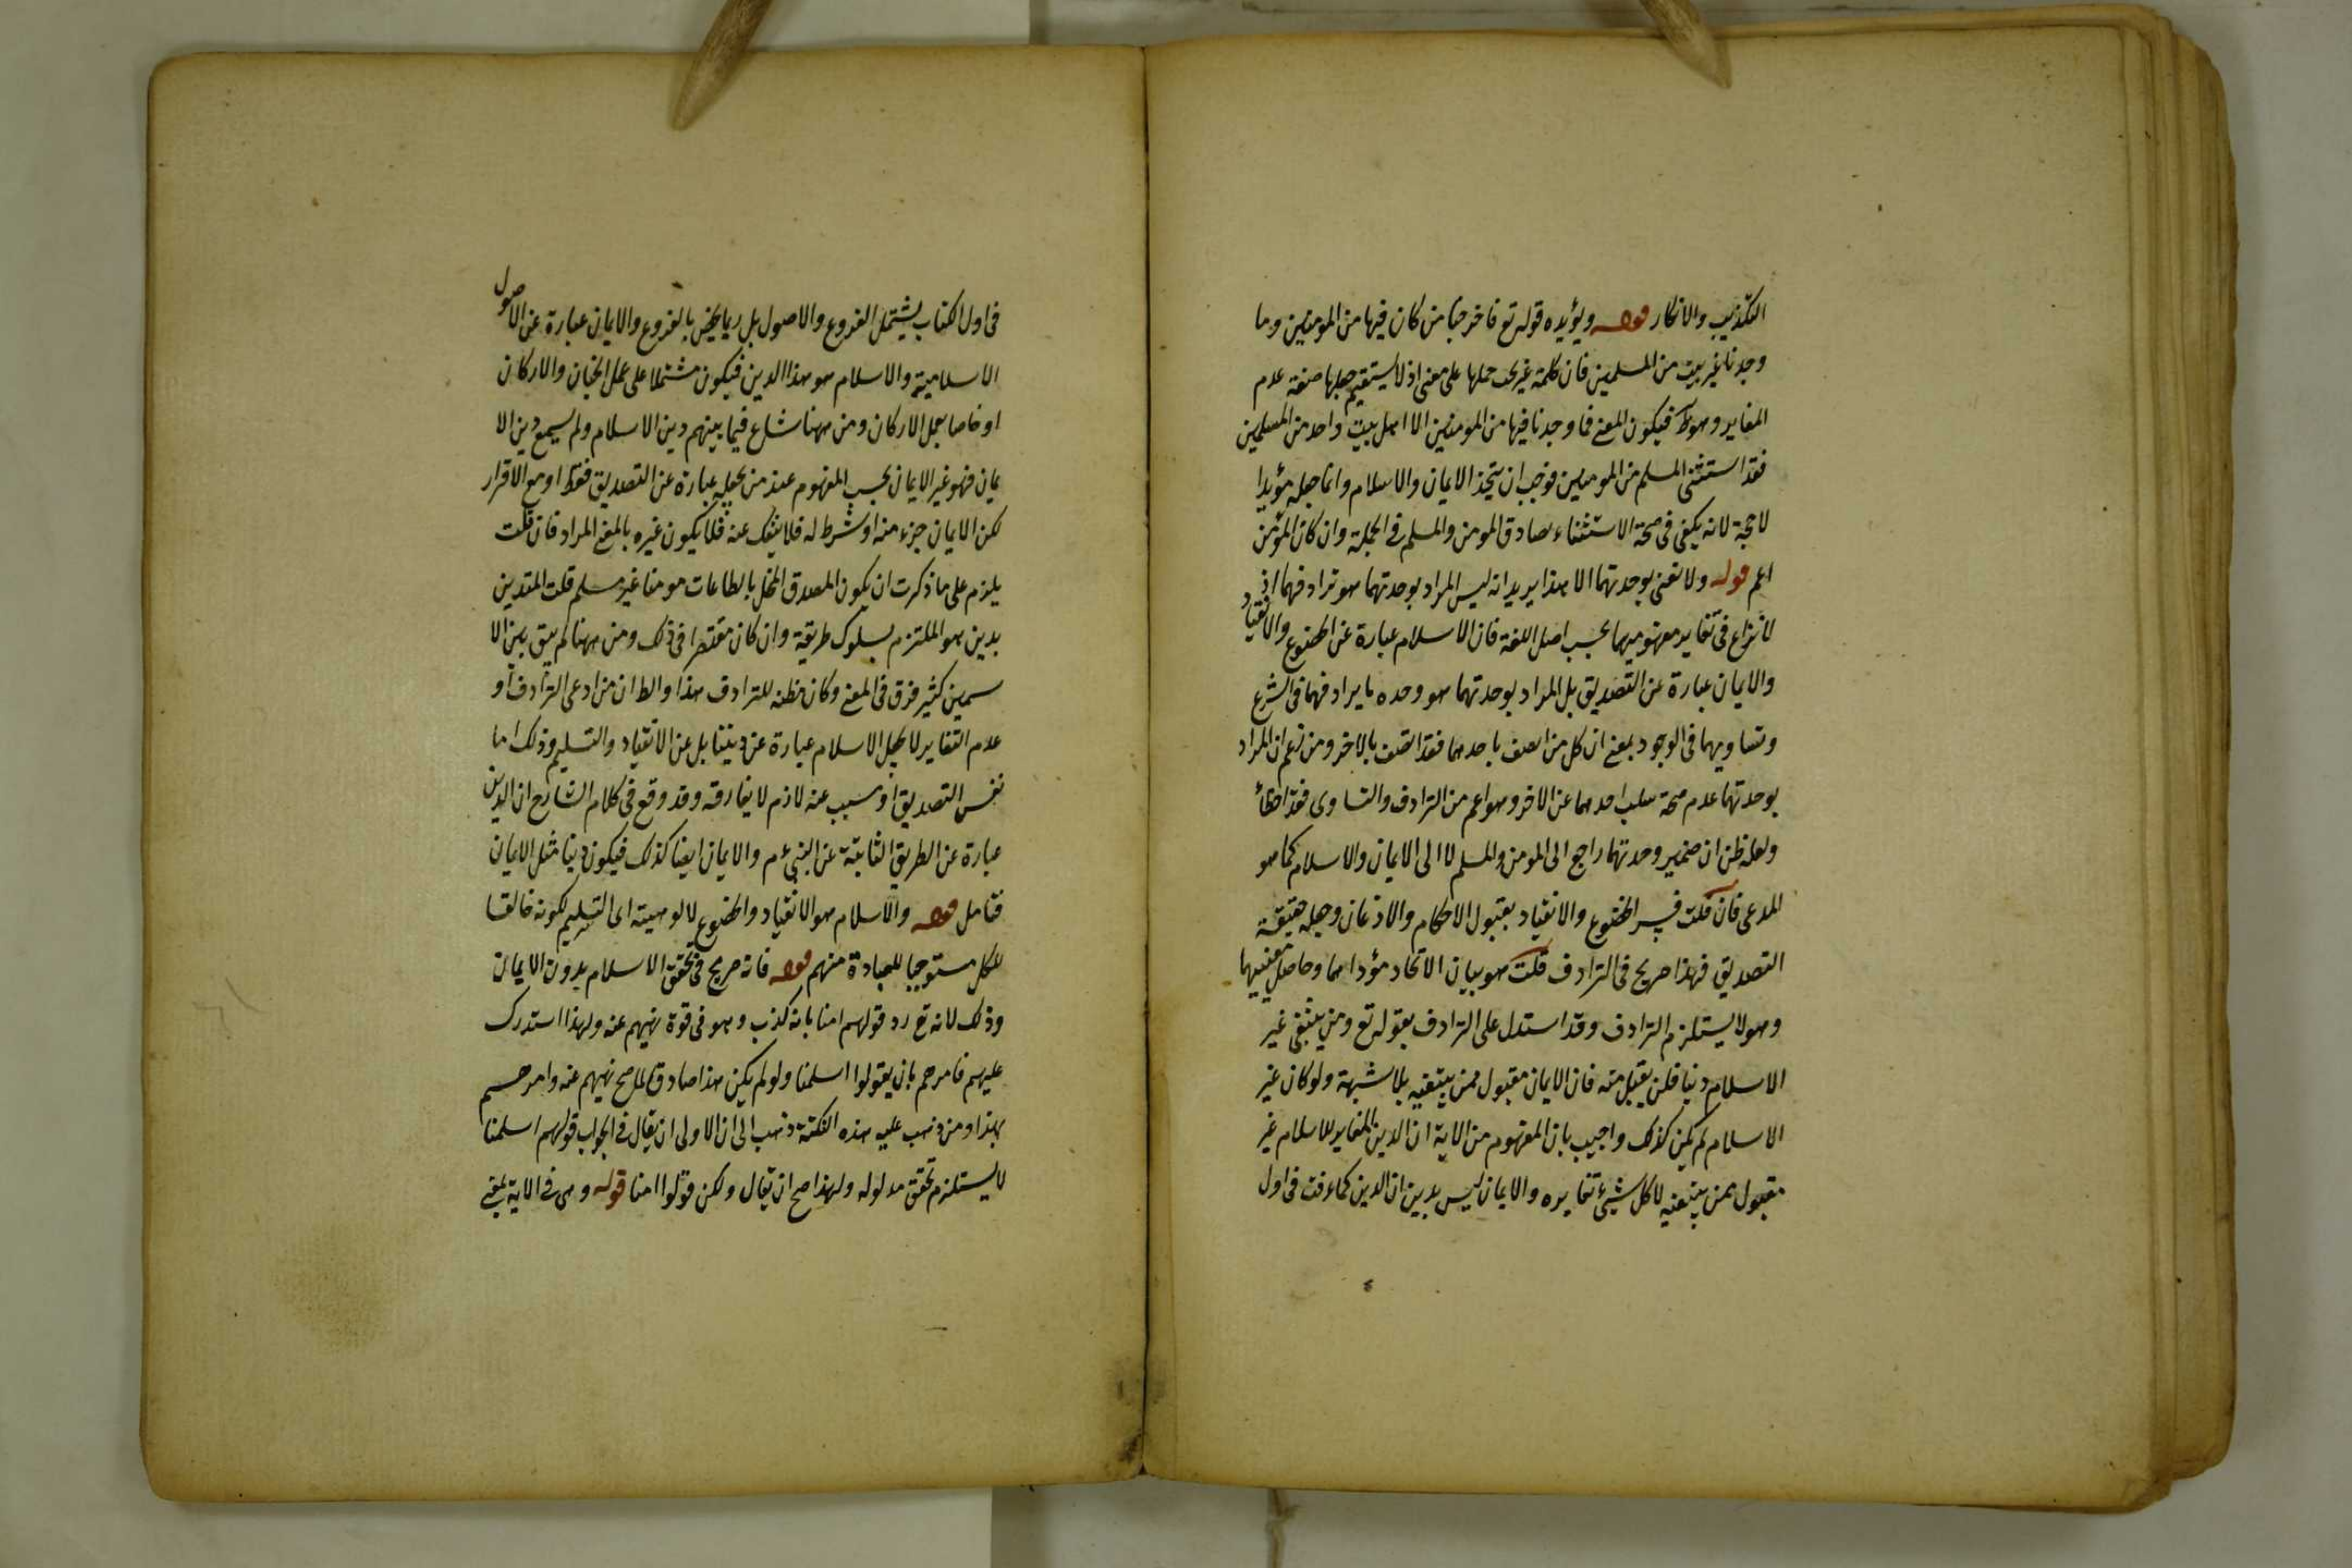 التكذيب والانكار قوله ويؤيده قوله تع فاخرجنا من كان فيها من المومنين وما
وجدنا غير بيت من المسلمين فان كلمة غير يجب حملها على معنى اذ لا يستقيم جعلها صفة عدم
المغاير وهو ظ فيكون المعنى فما وجدنا فيها من المومنين الا اهل بيت واحد من المسلمين
فقد استثنى المسلم من المومنين فوجب ان يتحد الايمان والاسلام وانما جعله مؤيدا
لا حجة لانه يكفى فى صحة الاستثناء تصادق المومن والمسلم فى الجملة وان كان المؤمن
اعم قوله ولا نعنى بوحدتهما الا هذا يريد انه ليس المراد بوحدتهما هو ترادفهما اذ
لا نزاع فى تغاير مفهوميهما بحسب اصل اللغة فان الاسلام عبارة عن الخضوع والانقياد
والايمان عبارة عن التصديق بل المراد بوحدتهما هو وحده ما يرادفهما فى الشرع
وتساويهما فى الوجود بمعنى ان كل من اتصف باحدهما فقد اتصف بالاخر ومن زعم ان المراد
بوحدتهما عدم صحة سلب احدهما عن الاخر وهو اعم من الترادف والتساوى فقد اخطأ
ولعله ظن ان ضمير وحدتهما راجع الى المومن والمسلم لا الى الايمان والاسلام كما هو
المدعى فان قلت فسر الخضوع والانقياد بقبول الاحكام والاذعان وجعله حقيقة
التصديق فهذا صريح فى الترادف قلت هو بيان الاتحاد مؤداهما وحاصل معنييهما
وهو لا يستلزم الترادف وقد استدل على الترادف بقوله تع ومن يبتغ غير
الاسلام دينا فلن يقبل منه فان الايمان مقبول ممن يبتغيه بلا شبهة ولو كان غير
الاسلام لم يكن كذلك واجيب بان المفهوم من الاية ان الدين المغاير للاسلام غير
مقبول ممن يبتغيه لا كل شيئ تغايره والايمان ليس بدين ان الدين كما عرفت فى اول
فى اول الكتاب يشتمل الفروع والاصول بل ربما يختص بالفروع والايمان عبارة عن الاصول
الاسلامية والاسلام هو هذا الدين فيكون مشتملا على عمل الجنان والاركان
او خاصا بعمل الاركان ومن ههنا شاع فيما بينهم دين الاسلام ولم يسمع دين الا
يمان فهو غير الايمان بحسب المفهوم عند من يجعله عبارة عن التصديق فقط او مع الاقرار
لكن الايمان جزء منه او شرط له فلا ينفك عنه فلا يكون غيره بالمعنى المراد فان قلت
يلزم على ما ذكرت ان يكون المصدق المخل بالطاعات مومنا غير مسلم قلت المتدين
بدين هو الملتزم بسلوك طريقة وان كان مقتصرا فى ذلك ومن ههنا لم يبق بين الا
سمين كثير فرق فى المعنى وكان مظنه للترادف هذا والظ ان من ادعى الترادف او
عدم التغاير لا يجعل الاسلام عبارة عن ديننا بل عن الانقياد والتسليم وذلك اما
نفس التصديق او مسبب عنه لازم لا يفارقه وقد وقع فى كلام الشارح ان الدين
عبارة عن الطريق الثابتة عن النبى ءم والايمان ايضا كذلك فيكون دينا مثل الايمان
فتامل قوله والاسلام هو الانقياد والخضوع لالوهيته اى التسليم لكونه خالقا
للكل مستوجبا للعبادة منهم قوله فانه صريح فى تحقق الاسلام بدون الايمان
وذلك لانه تع رد قولهم امنا بانه كذب وهو فى قوة نهيهم عنه ولهذا استدرك
عليهم فامرهم بان يقولوا اسلمنا ولو لم يكن هذا صادقا لما صح نهيهم عنه وامرهم
بهذا ومن ذهب عليه هذه النكتة ذهب الى ان الاولى ان يقال فى الجواب قولهم اسلمنا
لا يستلزم تحقق مدلوله ولهذا صح ان يقال ولكن قولوا امنا قوله وهى فى الاية بمعنى